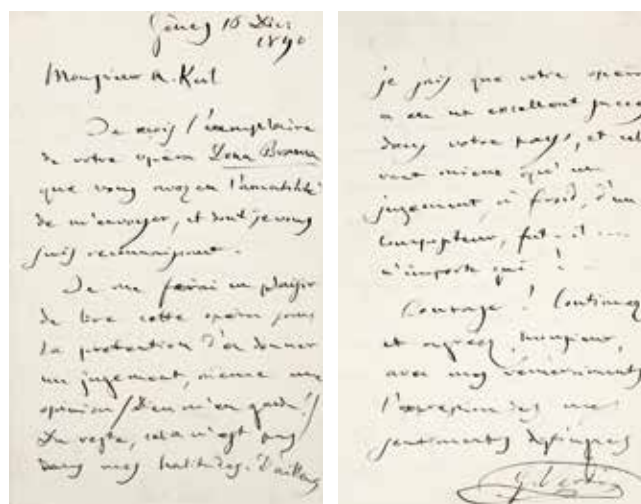 Gênes 15 Dec
1890
Monsieur A. Keil
Je reçois l'exemplaire
de votre opéra Dona Branca
que vous avez eu l'amabilité
de m'envoyer, et dont je vous
suis reconnaissant.
Je me ferai un plaisir
de lire cette opéra sans
la prétention d'en donner
un jugement, même une
opinion (Dieu m'en garde!)
Du reste, cela n'est pas
dans mes habitudes. D'ailleurs
je sais que votre opéra
a eu un excellent succès
dans votre pays, et cela
vaut mieux qu'un
jugement, à froid, d'un
compositeur, fut-il
n'importe qui!
Courage! Continuez
et agréez, Monsieur,
avec mes remerciments
l'expression de mes
sentiments distingués
G. Verdi